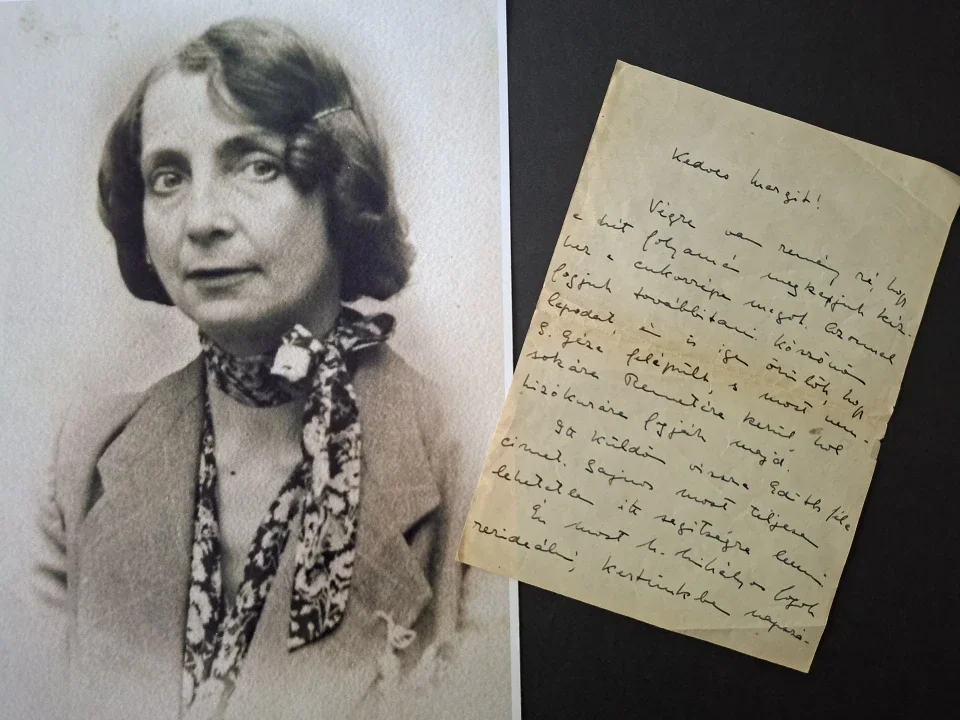 Kedves Margit!
Végre van remény rá, hogy
a hét folyamán megkapjuk kéz-
hez a cukorrépa magot. Azonnal
fogjuk továbbítani. Köszönöm
lapodat én is igen örülök, hogy
G. Géza felépült, s most nem-
sokára Remetére kerül hol
hízókurára fogják majd.
Itt küldöm vissza Edith féle
címet. Sajnos most teljesen
lehetetlen itt segítségre lenni
Én most h. mihályon fogok
rezideálni, kertünkben